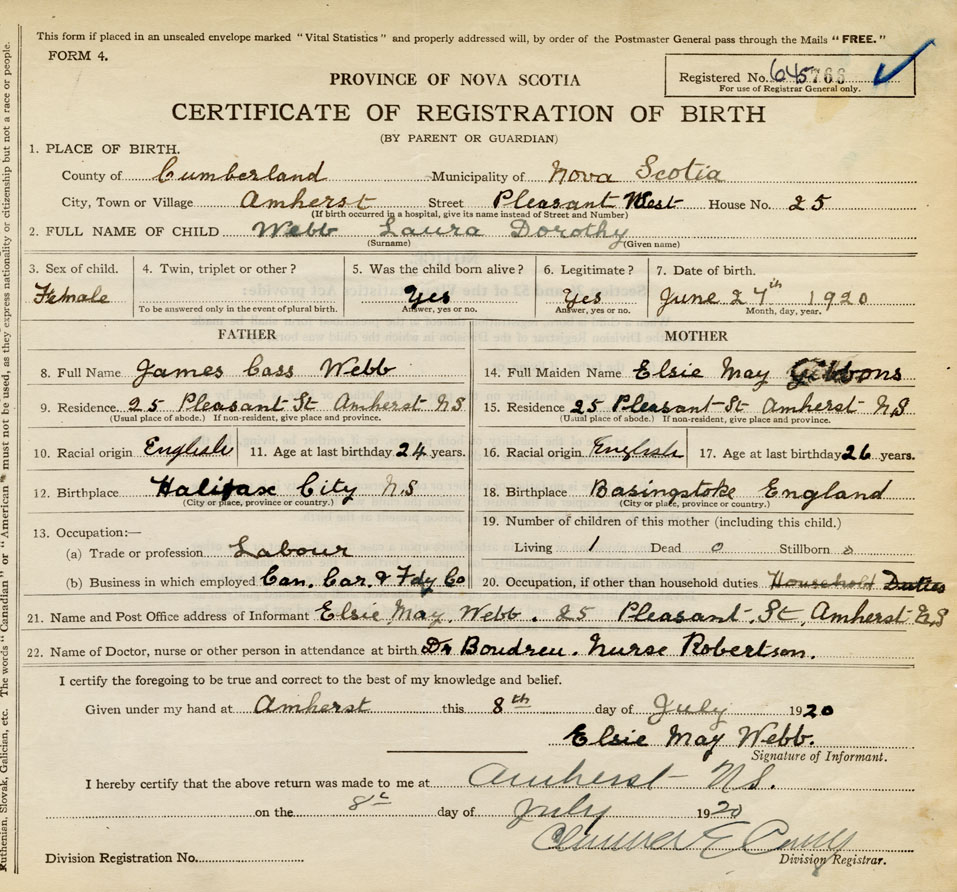 This form if placed in an unsealed envelope marked "Vital Statistics" and properly addressed will, by order of the Postmaster General pass through the Mails "FREE."
FORM 4.
Registered No. 645766
For use of Registrar General only.
PROVINCE OF NOVA SCOTIA
CERTIFICATE OF REGISTRATION OF BIRTH
(BY PARENT OR GUARDIAN)
1. PLACE OF BIRTH.
County of Cumberland Municipality of Nova Scotia
City, Town or Village Amherst Street Pleasant West House No. 25
(If birth occurred in a hospital, give its name instead of Street and Number)
2. FULL NAME OF CHILD Webb Laura Dorothy
(Surname) (Given name)
3. Sex of child. Female
4. Twin, triplet or other?
To be answered only in the event of plural birth.
5. Was the child born alive? Yes
Answer, yes or no.
6. Legitimate? Yes
Answer, yes or no.
7. Date of birth.
June 27th 1920
Month, day, year.
FATHER
8. Full Name James Cass Webb
9. Residence 25 Pleasant St Amherst N.S
(Usual place of abode.) If non-resident, give place and province.
10. Racial origin English 11. Age at last birthday 24 years.
12. Birthplace Halifax City N.S
(City or place, province or country.)
13. Occupation:—
(a) Trade or profession Labour
(b) Business in which employed Can. Car. & Fdy Co
MOTHER
14. Full Maiden Name Elsie May Gibbons
15. Residence 25 Pleasant St Amherst N.S
(Usual place of abode.) If non-resident, give place and province.
16. Racial origin English 17. Age at last birthday 26 years.
18. Birthplace Basingstoke England
(City or place, province or country.)
19. Number of children of this mother (including this child.)
Living 1 Dead 0 Stillborn 0
20. Occupation, if other than household duties Household Duties
21. Name and Post Office address of Informant Elsie May Webb. 25 Pleasant St, Amherst N.S
22. Name of Doctor, nurse or other person in attendance at birth Dr Boudreu. Nurse Robertson.
I certify the foregoing to be true and correct to the best of my knowledge and belief.
Given under my hand at Amherst this 8th day of July 1920
Elsie May Webb.
Signature of Informant.
I hereby certify that the above return was made to me at Amherst N.S.
on the 8th day of July 1920
Division Registration No.
Division Registrar.
Ruthenian, Slovak, Galician, etc. The words "Canadian" or "American" must not be used, as they express nationality or citizenship but not a race or people.